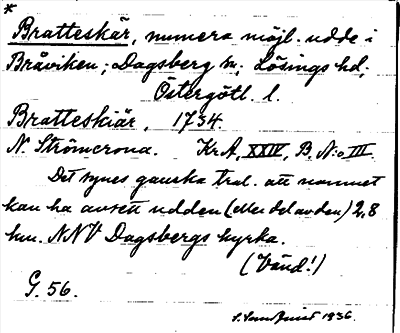 *
Bratteskär, numera möjl. udde i
Bråviken; Dagsberg sn; Lösings hd;
Östergötl. l.
Bratteskiär, 1734.
N. Strömcrona. Kr A, XXIV, B. N:o III
Det synes ganska trol. att namnet
kan ha avsett udden (eller del av den) 2,8
km. NNV Dagsbergs kyrka.
(Vänd!)
G. 56.
1936